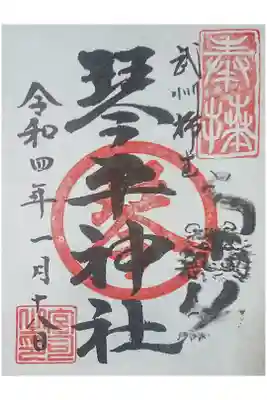 奉拝
武州柿生
琴平神社
令和四年一月十八日